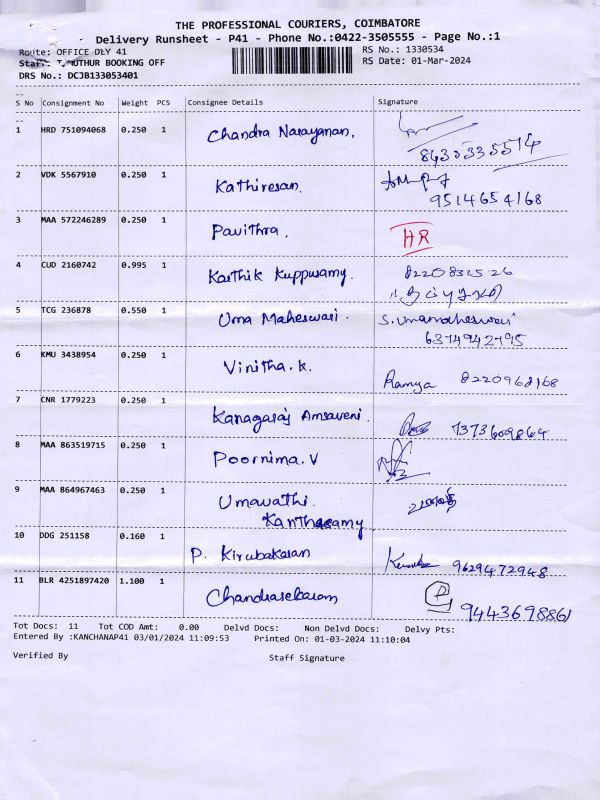 THE PROFESSIONAL COURIERS, COIMBATORE
Delivery Runsheet - P41 - Phone No.:0422-3505555 - Page No.:1
Route: OFFICE DLY 41 RS No.: 1330534
Staff: T.MUTHUR BOOKING OFF RS Date: 01-Mar-2024
DRS No.: DCJB133053401
S No Consignment No Weight PCS Consignee Details Signature
1 HRD 751094068 0.250 1 Chandra Narayanan.
8430335574
2 VDK 5567910 0.250 1 Kathiresan.
9514654168
3 MAA 572246289 0.250 1 Pavithra. HR
4 CUD 2160742 0.995 1 Karthik Kuppusamy. 8220832526
5 TCG 236878 0.550 1 Uma Maheswari. S. Umamaheswari
6374942795
6 KMU 3438954 0.250 1 Vinitha.K. Ramya 8220968168
7 CNR 1779223 0.250 1 Kanagaraj Amsaveni. 7373609864
8 MAA 863519715 0.250 1 Poornima.V
9 MAA 864967463 0.250 1 Umavathi.
Kanthasamy
10 DDG 251158 0.160 1 P. Kirubakaran 9629472948
11 BLR 4251897420 1.100 1 Chandrasekaram P
9443698861
Tot Docs: 11 Tot COD Amt: 0.00 Delvd Docs: Non Delvd Docs: Delvy Pts:
Entered By :KANCHANAP41 03/01/2024 11:09:53 Printed On: 01-03-2024 11:10:04
Verified By Staff Signature